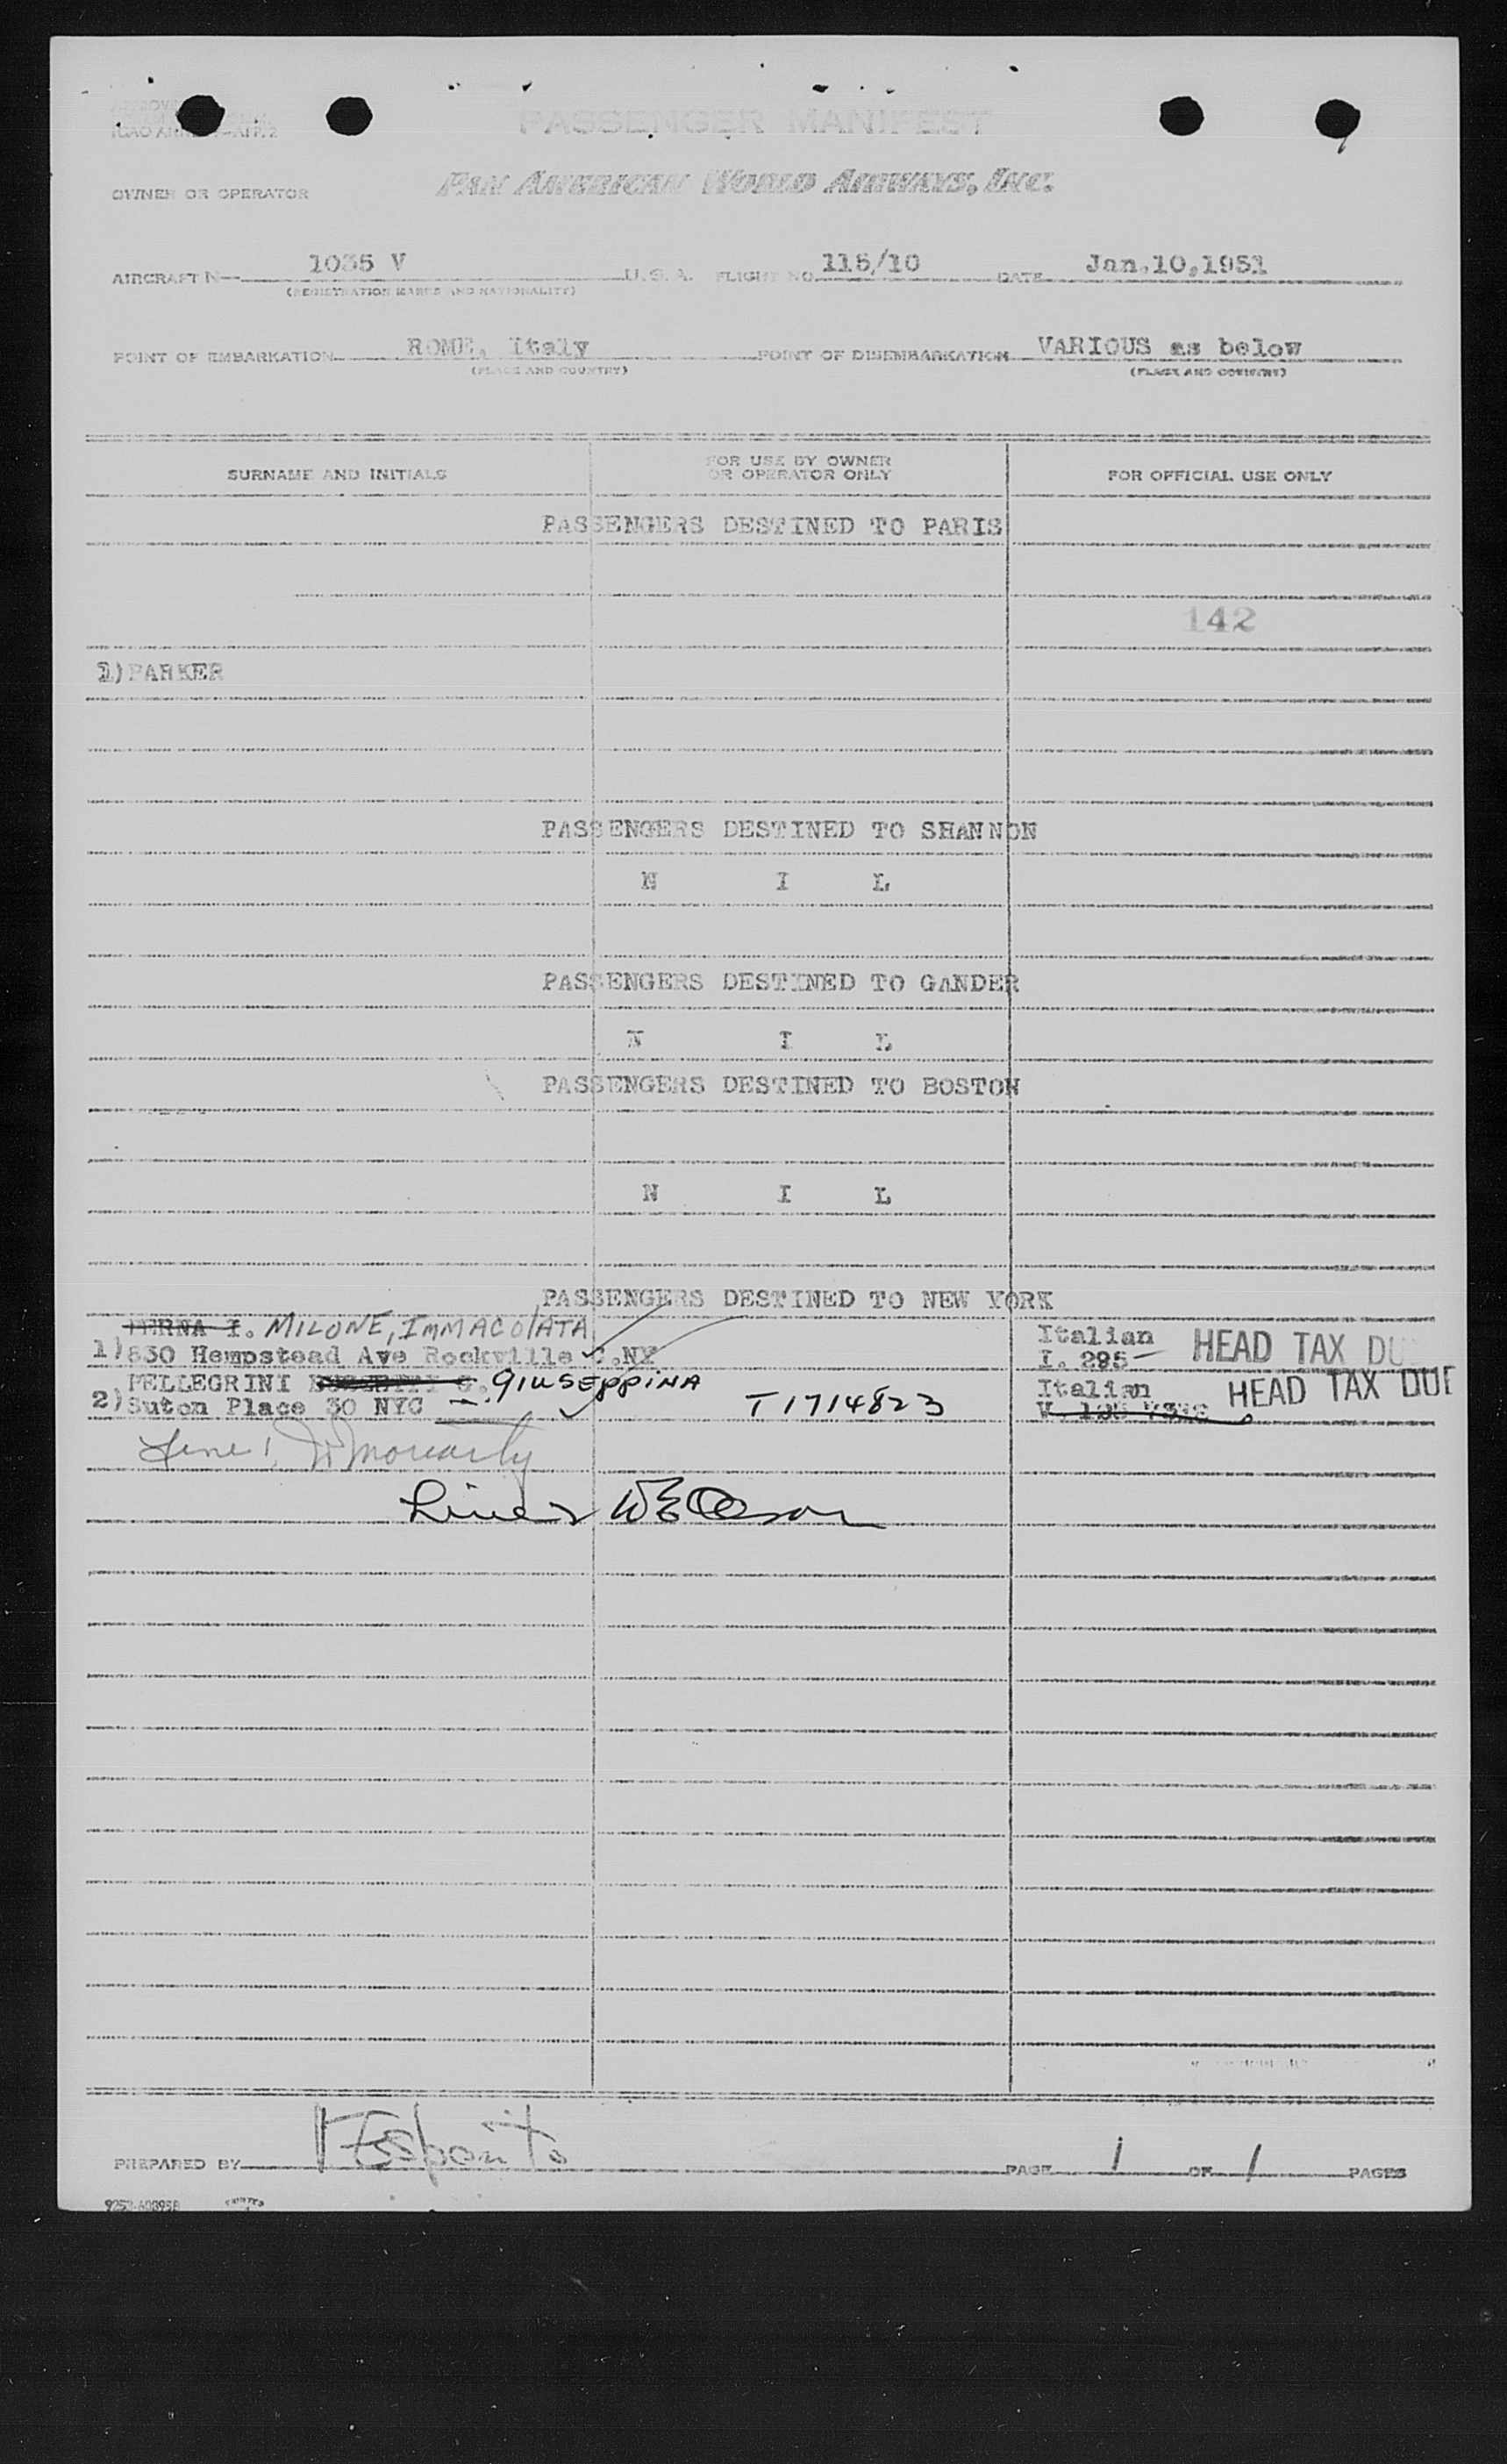 PASSENGER MANIFEST
OWNER OR OPERATOR PAN AMERICAN WORLD AIRWAYS, INC.
AIRCRAFT N— 1035 V U.S.A. FLIGHT NO. 115/10 DATE Jan.10,1951
(REGISTRATION MARKS AND NATIONALITY)
POINT OF EMBARKATION ROME, Italy POINT OF DISEMBARKATION VARIOUS as below
(PLACE AND COUNTRY) (PLACE AND COUNTRY)
SURNAME AND INITIALS FOR USE BY OWNER OR OPERATOR ONLY FOR OFFICIAL USE ONLY
PASSENGERS DESTINED TO PARIS
142
1)PARKER
PASSENGERS DESTINED TO SHANNON
N I L
PASSENGERS DESTINED TO GANDER
N I L
PASSENGERS DESTINED TO BOSTON
N I L
PASSENGERS DESTINED TO NEW YORK
I. MILONE, IMMACOLATA Italian HEAD TAX DU
1)830 Hempstead Ave Rockville C.NY I. 295
PELLEGRINI G. GIUSEPPINA Italian HEAD TAX DUE
2)Suton Place 30 NYC T1714823 V.
Line 1, Moriarty
Line 2
PREPARED BY Esposito PAGE 1 OF 1 PAGES